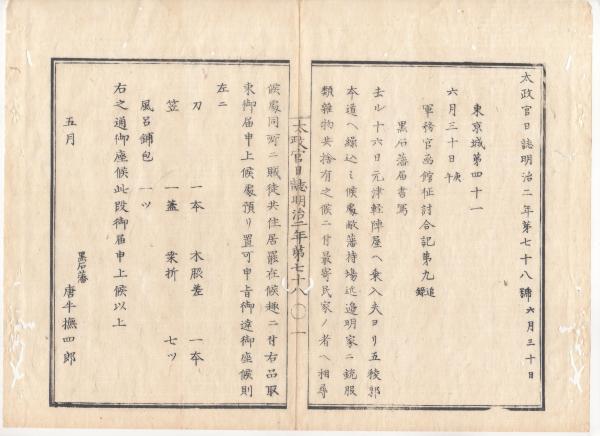 太政官日誌明治二年第七十八號 六月三十日
東京城第四十一
六月三十日 庚午
軍務官函館征討合記第九 追錄
黒石藩届書寫
去ル十六日元津軽陣屋ヘ乗入夫ヨリ五稜郭
本道ヘ繰込之候處敵藩持場近邊明家ニ銃服
類雜物共捨有之候ニ付最寄民家ノ者ヘ相尋
太政官日誌明治二年第七十八 〇一
候處同所ニ賊徒共住居罷在候趣ニ付右品取
束御届申上候處預リ置可申旨御達御座候則
左ニ
刀 一本 木服差 一本
笠 一蓋 桒折 七ツ
風呂鋪包 一ツ
右之通御座候此段御届申上候以上
五月
黒石藩 唐牛撫四郎